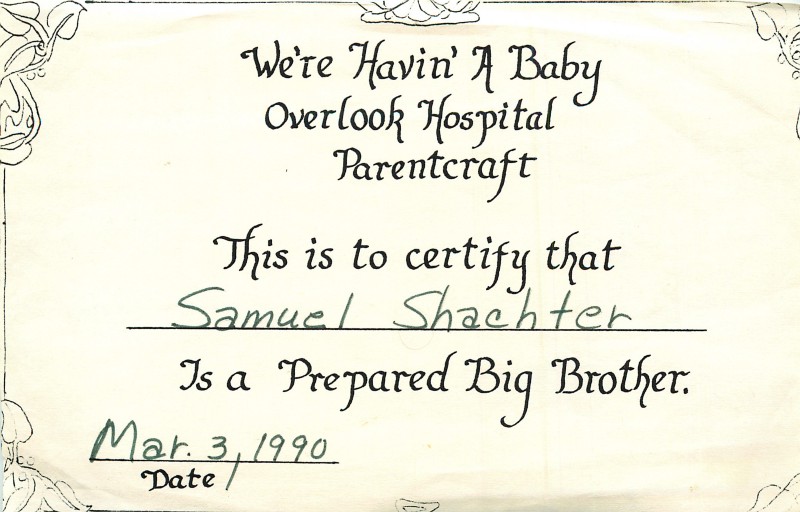 We're Havin' A Baby
Overlook Hospital
Parentcraft
This is to certify that
Samuel Shachter
Is a Prepared Big Brother.
Mar. 3, 1990
Date